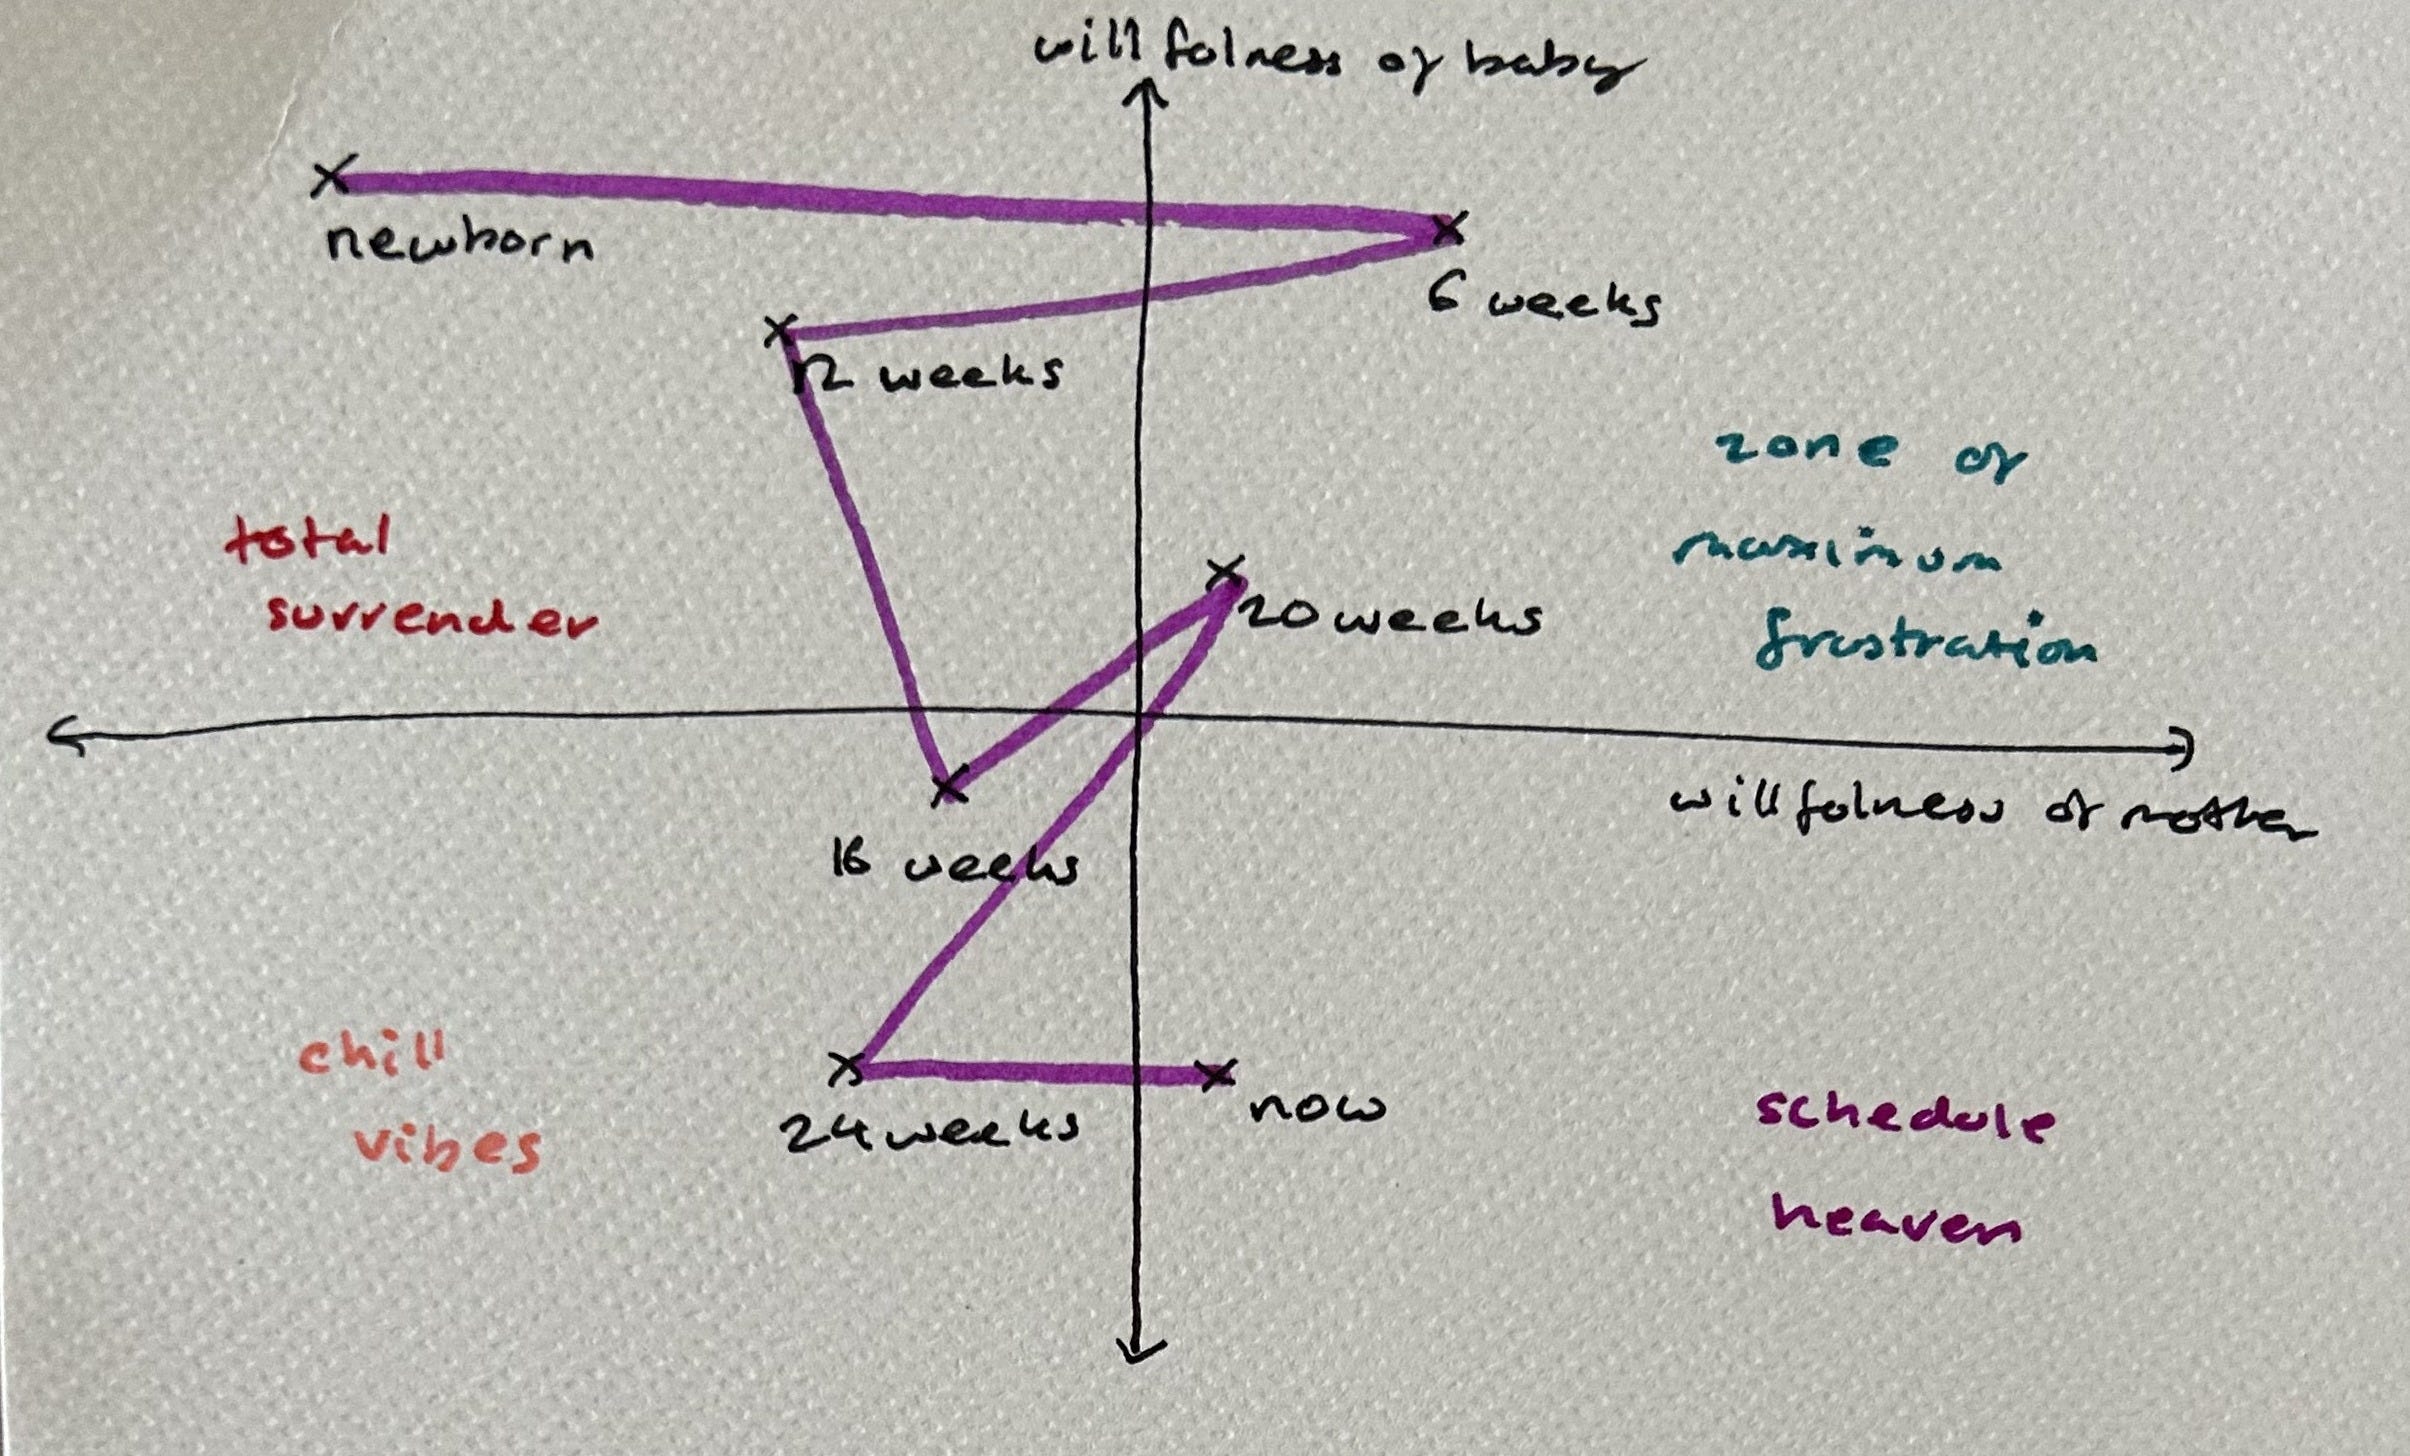 willfulness of baby
newborn
6 weeks
12 weeks
zone of
maximum
frustration
total
surrender
20 weeks
willfulness of mother
16 weeks
chill
vibes
24 weeks
now
schedule
heaven